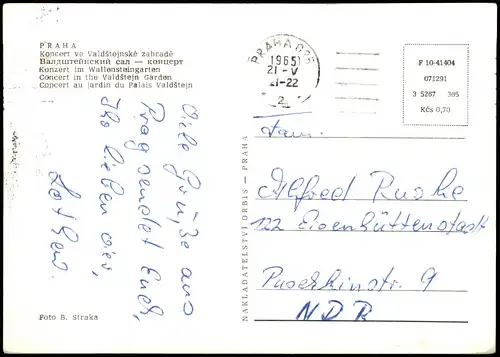 PRAHA
Koncert ve Valdštejnské zahradě
Валдштейнский сал — концерт
Konzert im Wallensteingarten
Concert in the Valdštejn Garden
Concert au jardin du Palais Valdštejn
Viele Grüße aus
Prag sendet Euch,
Ihr lieben vier,
Lothar.
Foto B. Straka
NAKLADATELSTVÍ ORBIS — PRAHA
PRAHA 025
1965
21-V
21-22
2
F 10-41404
071291
3 5267 305
Kčs 0,70
Fam.
Alfred Ruske
122 Eisenhüttenstadt
Puschkinstr. 9
NDR